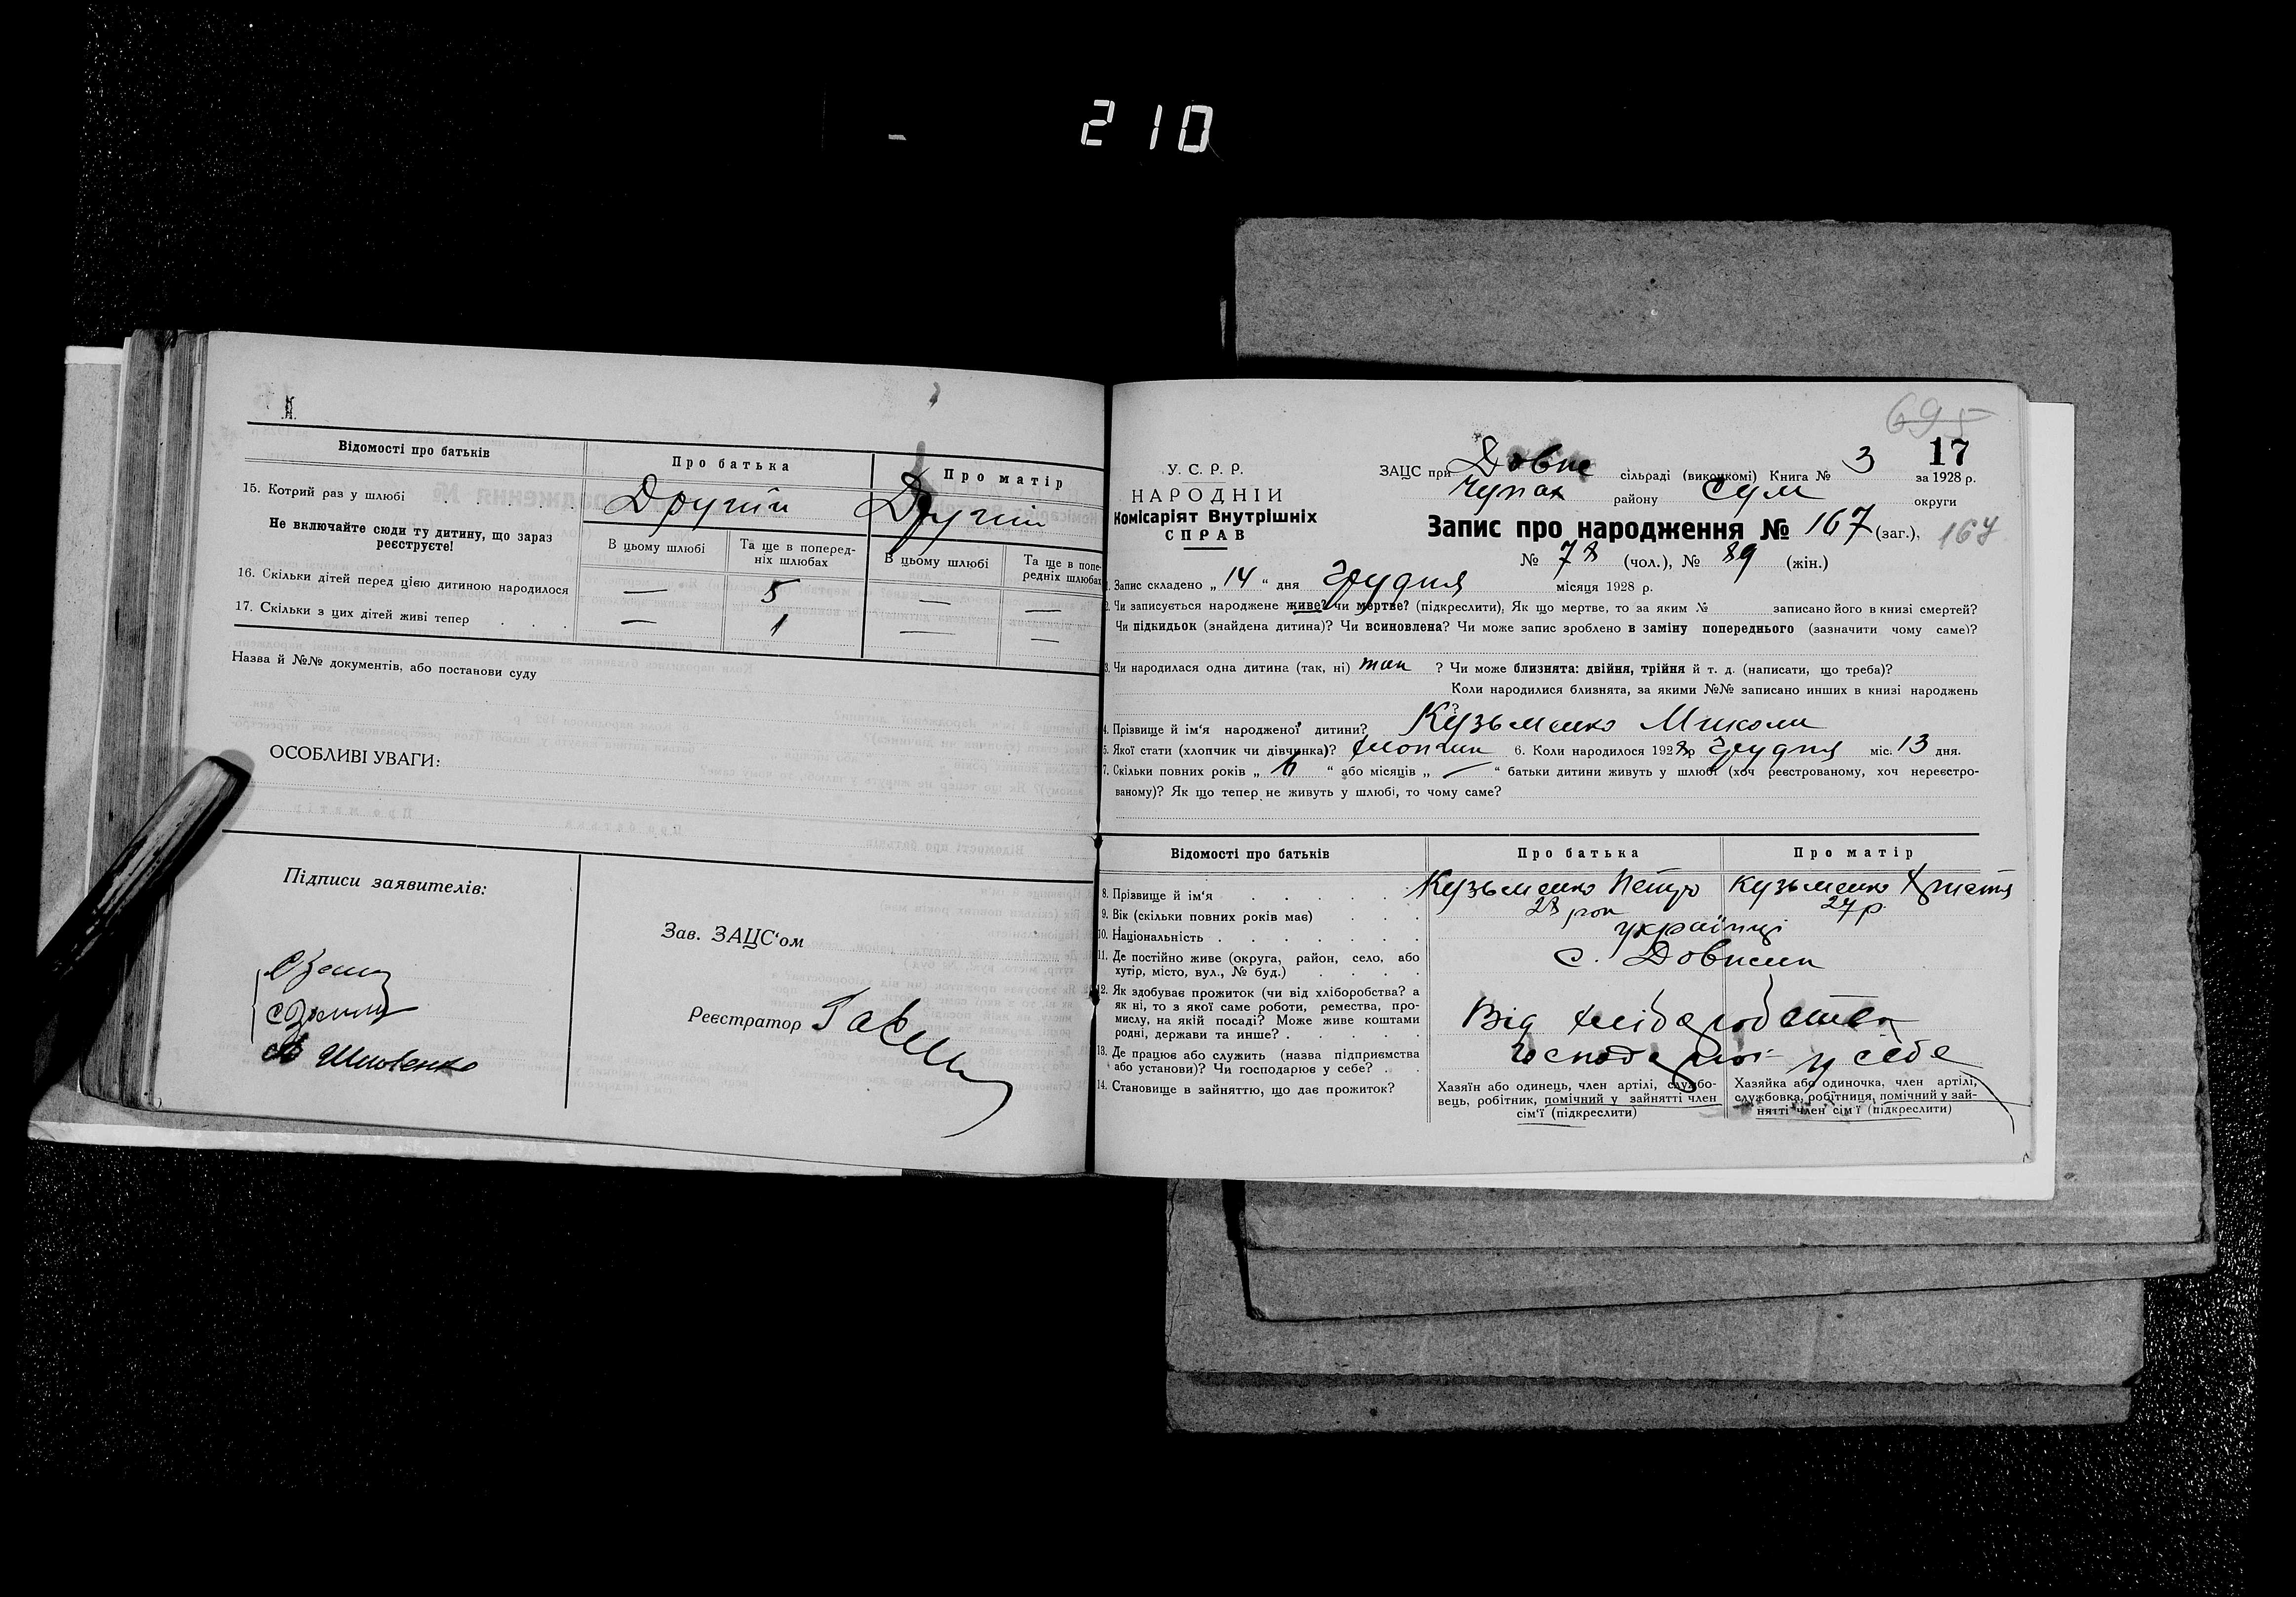 210
Відомості про батьків
Про батька
Про матір
15. Котрий раз у шлюбі
Другий
Другий
Не включайте сюди ту дитину, що зараз реєструєте!
В цьому шлюбі
Та ще в поперед-
ніх шлюбах
В цьому шлюбі
Та ще в попе-
редніх шлюбах
16. Скільки дітей перед цією дитиною народилося — 5 — —
17. Скільки з цих дітей живі тепер . . . — 1 — —
Назва й №№ документів, або постанови суду
ОСОБЛИВІ УВАГИ:
Підписи заявителів:
Зав. ЗАЦС'ом
Реєстратор
695
17
У. С. Р. Р.
НАРОДНІЙ
Комісаріят Внутрішніх
СПРАВ
ЗАЦС при Довже сільраді (виконкомі) Книга № 3 за 1928 р.
Чупах району Сум округи
Запис про народження № 167 (заг.), 167
№ 78 (чол.), № 89 (жін.)
1. Запис складено „ 14 “ дня Грудня місяця 1928 р.
2. Чи записується народжене живе? чи мертве? (підкреслити), Як що мертве, то за яким № записано його в книзі смертей?
Чи підкидьок (знайдена дитина)? Чи всиновлена? Чи може запис зроблено в заміну попереднього (зазначити чому саме)?
3. Чи народилася одна дитина (так, ні) так ? Чи може близнята: двійня, трійня й т. д. (написати, що треба)?
Коли народилися близнята, за якими №№ записано инших в книзі народжень
?
4. Прізвище й ім'я народженої дитини? Кузьменко Микола
5. Якої стати (хлопчик чи дівчинка)? хлопчик 6. Коли народилося 1928р Грудня міс. 13 дня.
7. Скільки повних років „ 6 “ або місяців „ — “ батьки дитини живуть у шлюбі (хоч реєстрованому, хоч нереєстро-
ваному)? Як що тепер не живуть у шлюбі, то чому саме?
Відомості про батьків
Про батька
Про матір
8. Прізвище й ім'я Кузьменко Петро Кузьменко Христя
9. Вік (скільки повних років має) 28 рок 27 р.
10. Національність українці
11. Де постійно живе (округа, район, село, або
хутір, місто, вул., № буд.)
с.
12. Як здобуває прожиток (чи від хліборобства? а
як ні, то з якої саме роботи, ремества, про-
мислу, на якій посаді? Може живе коштами
родні, держави та инше?
Від хліборобства
13. Де працює або служить (назва підприємства
або установи)? Чи господарює у себе?
у себе
14. Становище в зайняттю, що дає прожиток?
Хазяїн або одинець, член артілі, службо-
вець, робітник, помічний у зайнятті член
сім'ї (підкреслити)
Хазяйка або одиночка, член артілі,
службовка, робітниця, помічний у зай-
нятті член сім'ї (підкреслити)